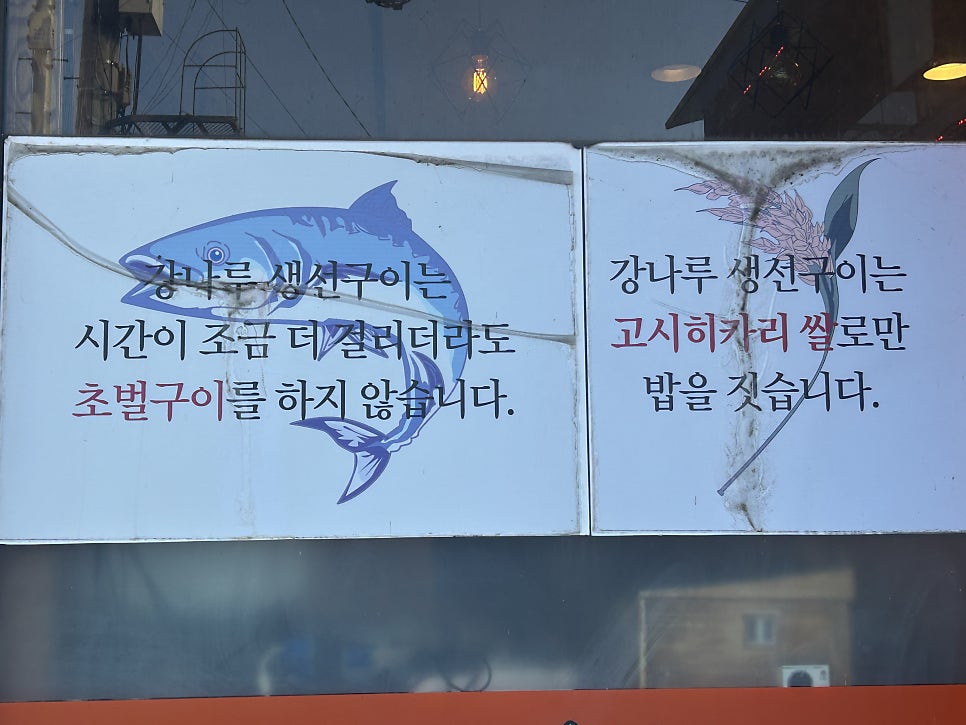 강나루 생선구이는
시간이 조금 더 걸리더라도
초벌구이를 하지 않습니다.
강나루 생선구이는
고시히카리 쌀로만
밥을 짓습니다.